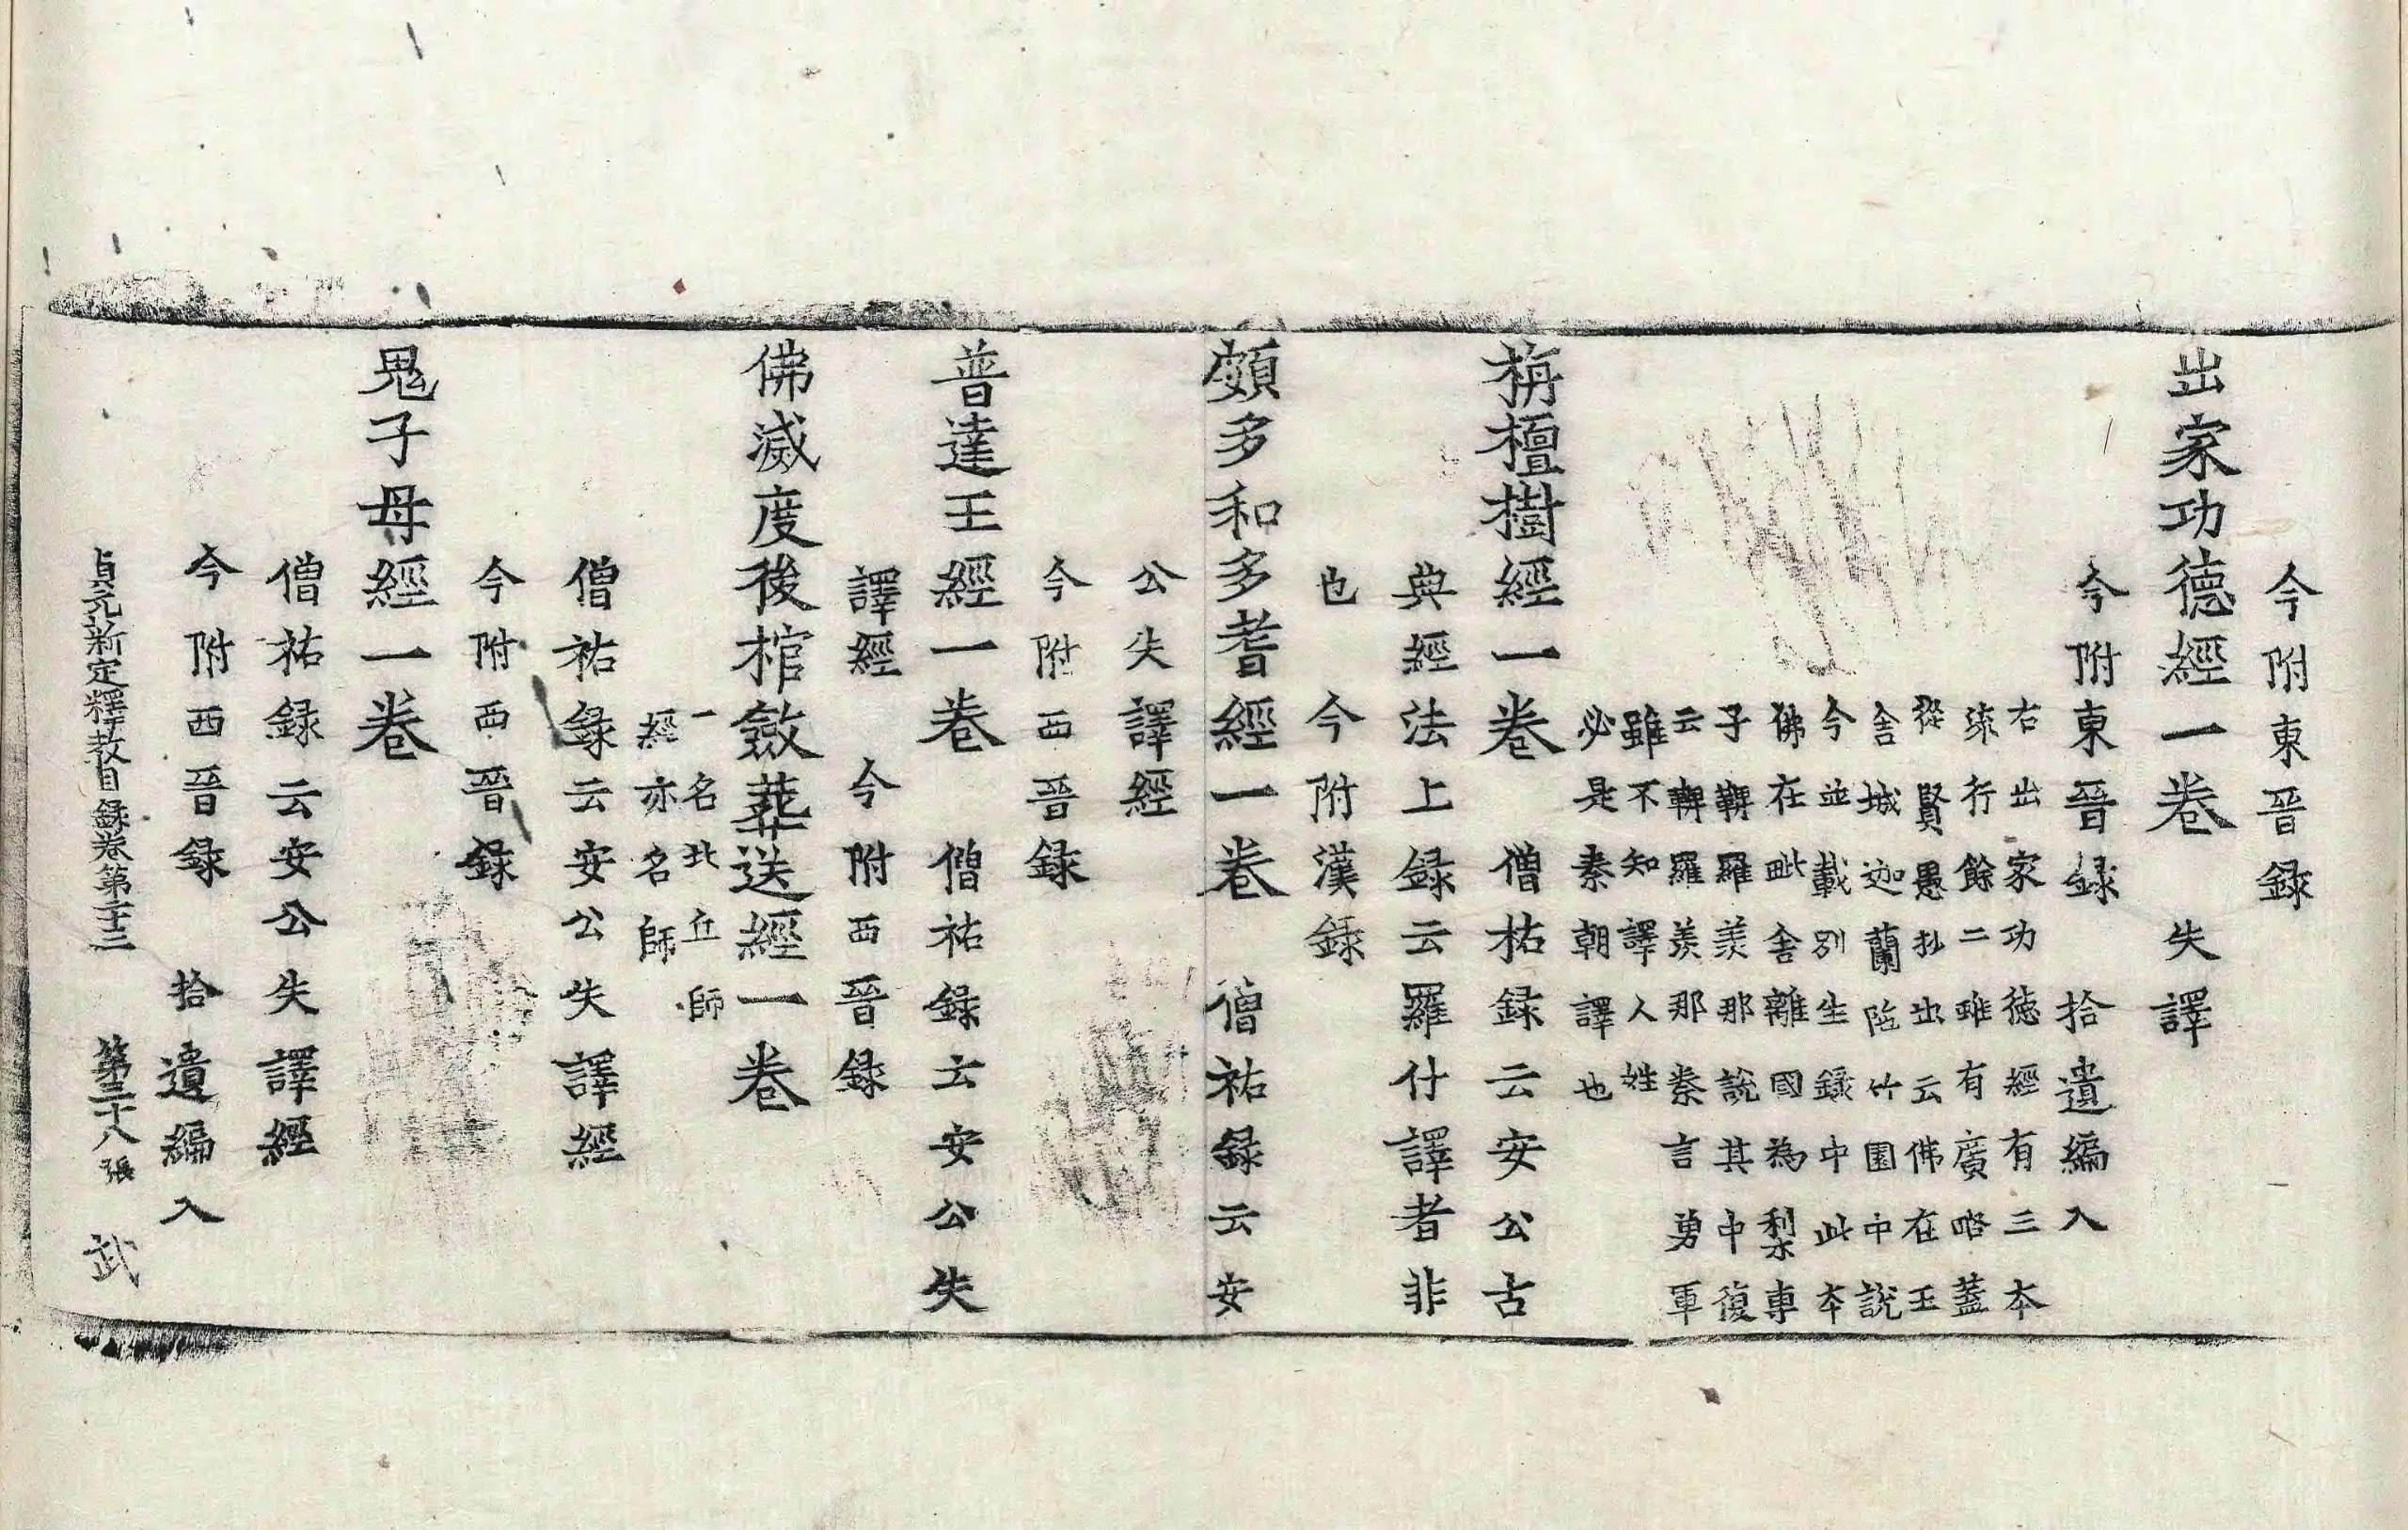 今附東晉録
出家功德經一卷 失譯
今附東晉録 拾遺編入
右出家功德經有三本
流行餘二雖有廣略蓋
從賢愚抄出云佛在王
舍城迦蘭陁竹園中說
今並載別生錄中此本
佛在毗舍離國為梨車
子鞞羅羨那說其中復
云鞞羅羨那秦言勇軍
雖不知譯人姓
必是秦朝譯也
栴檀樹經一卷 僧祐録云安公古
典經法上録云羅什譯者非
也 今附漢錄
頞多和多耆經一卷 僧祐録云安
公失譯經
今附西晉録
普達王經一卷 僧祐録云安公失
譯經 今附西晉録
佛滅度後棺斂葬送經一卷
一名比丘師
經亦名師
僧祐録云安公失譯經
今附西晉錄
鬼子母經一卷
僧祐録云安公失譯經
今附西晉録 拾遺編入
貞元新定釋教目録卷第二十三 第三十八張 武